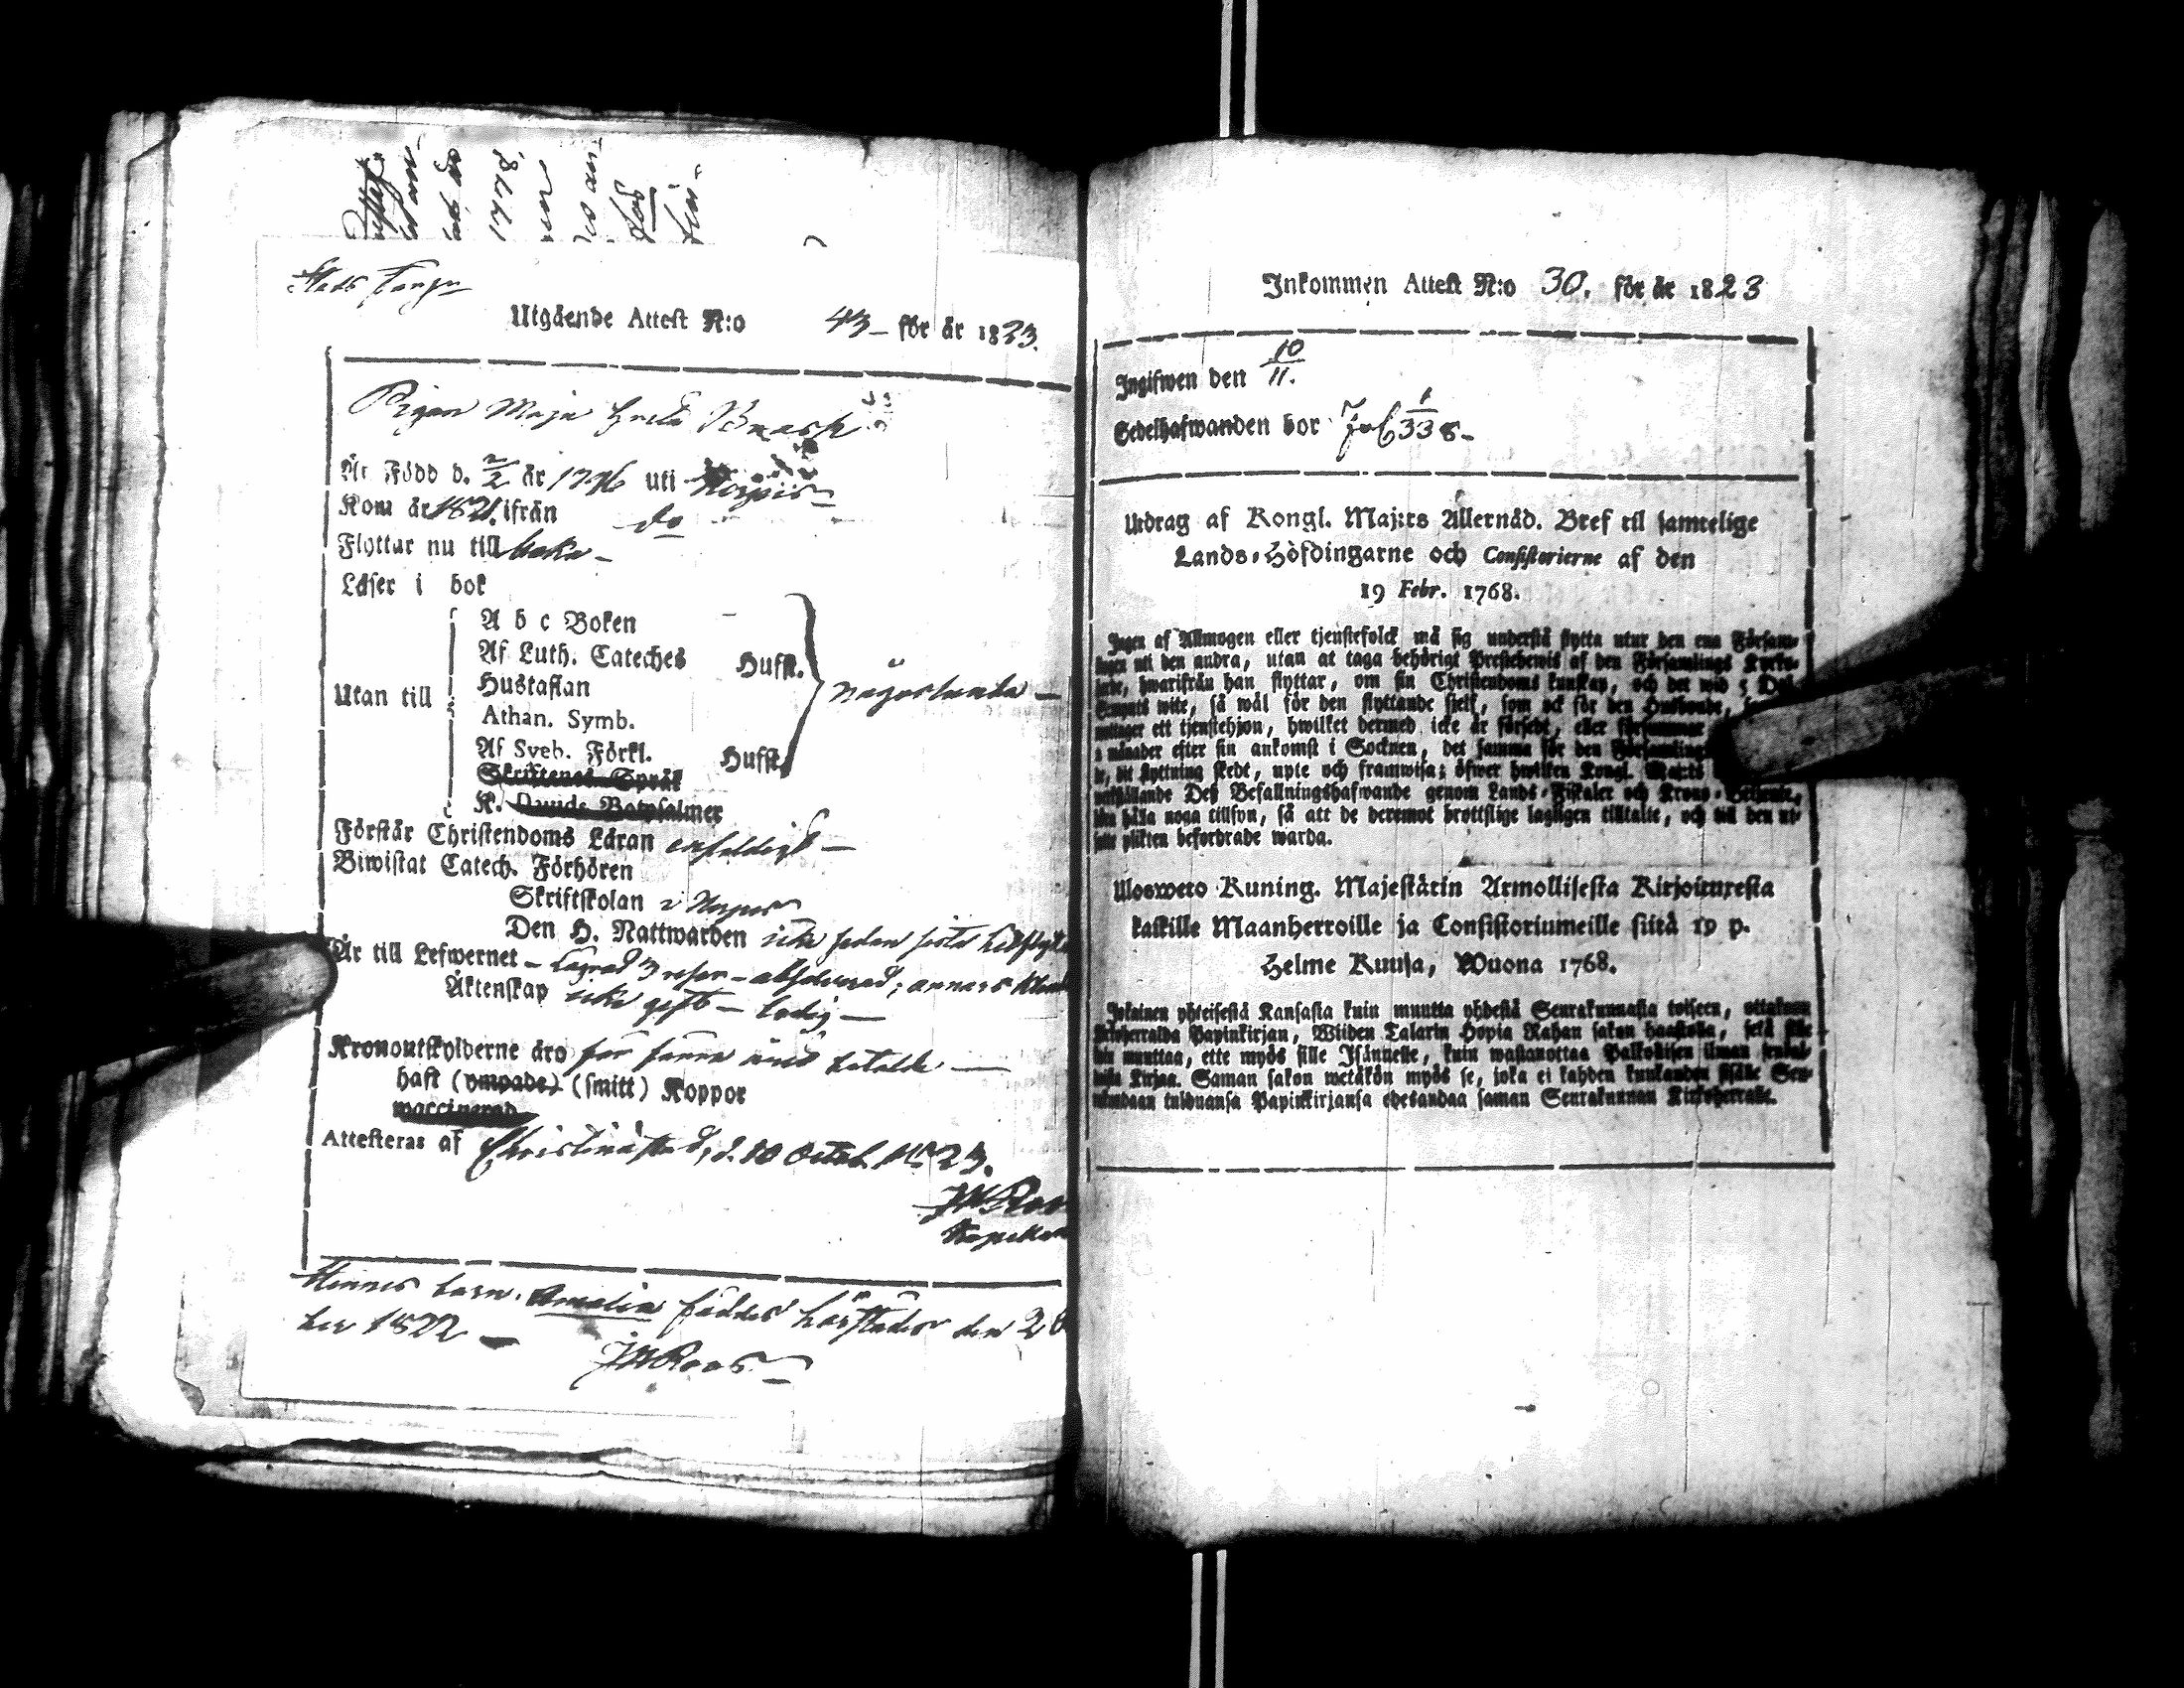 Utgående Attest N:o 43 – för år 1823.
Pigan Maja Greta Brask
Är Född d. 2/2 år 1796 uti
Kom år 1821 ifrån do
Flyttar nu till
Läser i bok
A b c Boken
Af Luth. Cateches Hufst.
Hustaflan
Utan till någorlunda –
Athan. Symb.
Af Sveb. Förkl. Hufst.
Skriftenes Språk
K. Davids Botpsalmer
Förstår Christendoms Läran enfaldigt –
Biwistat Catech. Förhören
Skriftskolan
Den H. Nattwarden icke sedan sista
Är till Lefwernet – lägrad 3 resor – absolverad; annars
Äktenskap icke gift – ledig –
Kronoutskylderne äro för förra året betalde –
haft (ympade) (smitt) Koppor
vaccinerad
Attesteras af Christinæstad, d. 10 Octob. 1823.
JWRoos
Kapellan
Hennes barn, Amalia föddes härstädes den
ber 1822 –
JWRoos
Inkommen Attest N:o 30. för år 1823
Ingifwen den 10/11.
Sedelhafwanden bor
Utdrag af Kongl. Maj:ts Allernåd. Bref til samtelige
Lands-Höfdingarne och Consistorierne af den
19 Febr. 1768.
Ingen af Allmogen eller tjenstefolck må sig understå flytta utur den ena Försam-
lingen uti den andra, utan at taga behörigt Prestebewis af den Församlings Kyrko-
herde, hwarifrån han flyttar, om sin Christendoms kunskap, och det wid 5 Dal.
Smynts wite, så wäl för den flyttande sielf, som ock för den Husbonde,
mottager ett tjenstehjon, hwilket dermed icke är försedt, eller försummar
2 månader efter sin ankomst i Socknen, det samma för den Församlings
de, dit flyttning skedt, upte och framwisa; öfwer hwilken Kongl. Maj:ts
werkställande Deß Befallningshafwande genom Lands-Fiskaler och Krono-Betiente,
böra hålla noga tillsyn, så att de deremot brottslige lagligen tilltalte, och till den ut-
satte plikten befordrade warda.
Ulosweto Kuning. Majestätin Armollisesta Kirjoituxesta
kaikille Maanherroille ja Consistoriumeille siitä 19 p.
Helme Kuusa, Wuona 1768.
Jokainen yhteisestä Kansasta kuin muutta yhdestä Seurakunnasta toiseen, ottakoon
Kirkoherralda Papinkirjan, Wiiden Talarin Hopia Rahan sakon haastolla, sekä sille
kuin muuttaa, ette myös sille Isännelle, kuin wastanottaa Palkollisen ilman
Kirjaa. Saman sakon wetäkön myös se, joka ei kahden kuukauden sisälle Seu-
rakundaan tulduansa Papinkirjansa edesandaa saman Seurakunnan Kirkoherralle.